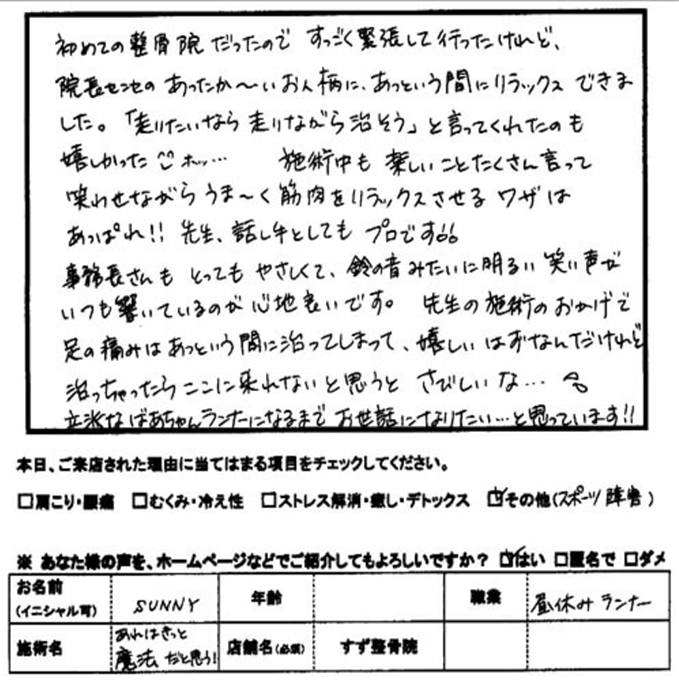 初めての整骨院だったので すっごく緊張して行ったけれど、
院長センセのあったか～いお人柄に、あっという間にリラックスできま
した。「走りたいなら走りながら治そう」と言ってくれたのも
嬉しかった ホッ… 施術中も楽しいことたくさん言って
笑わせながらうま～く筋肉をリラックスさせるワザは
あっぱれ!! 先生、話し手としてもプロです
事務長さんも とっても やさしくて、鈴の音みたいに明るい笑い声が
いつも響いているのが心地良いです。 先生の施術のおかげで
足の痛みはあっという間に治ってしまって、嬉しいはずなんだけれど
治っちゃったらここに来れないと思うと さびしいな…
立派なばあちゃんランナーになるまでお世話になりたい…と思っています!!
本日、ご来店された理由に当てはまる項目をチェックしてください。
□肩こり・腰痛 □むくみ・冷え性 □ストレス解消・癒し・デトックス ☑その他(スポーツ障害)
※ あなた様の声を、ホームページなどでご紹介してもよろしいですか? ☑はい □匿名で □ダメ
お名前 (イニシャル可) SUNNY 年齢 職業 昼休みランナー
施術名 あれはきっと魔法だと思う! 店舗名(必須) すず整骨院